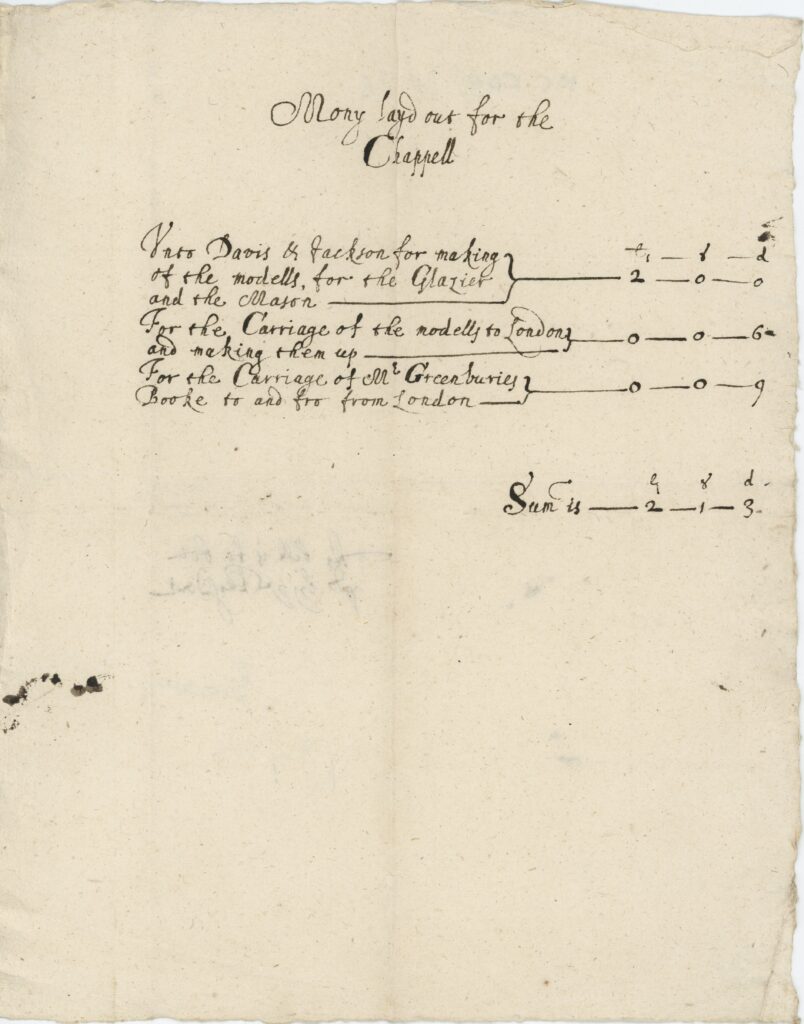 Mony layd out for the
Chappell
li — s — d
Vnto Davis & Jackson for making
of the modells, for the Glazier — 2 — 0 — 0
and the Mason
For the Carriage of the modells to London — 0 — 0 — 6
and making them up
For the Carriage of Mr Greenburies — 0 — 0 — 9
Booke to and fro from London
li s d
Sum is — 2 — 1 — 3